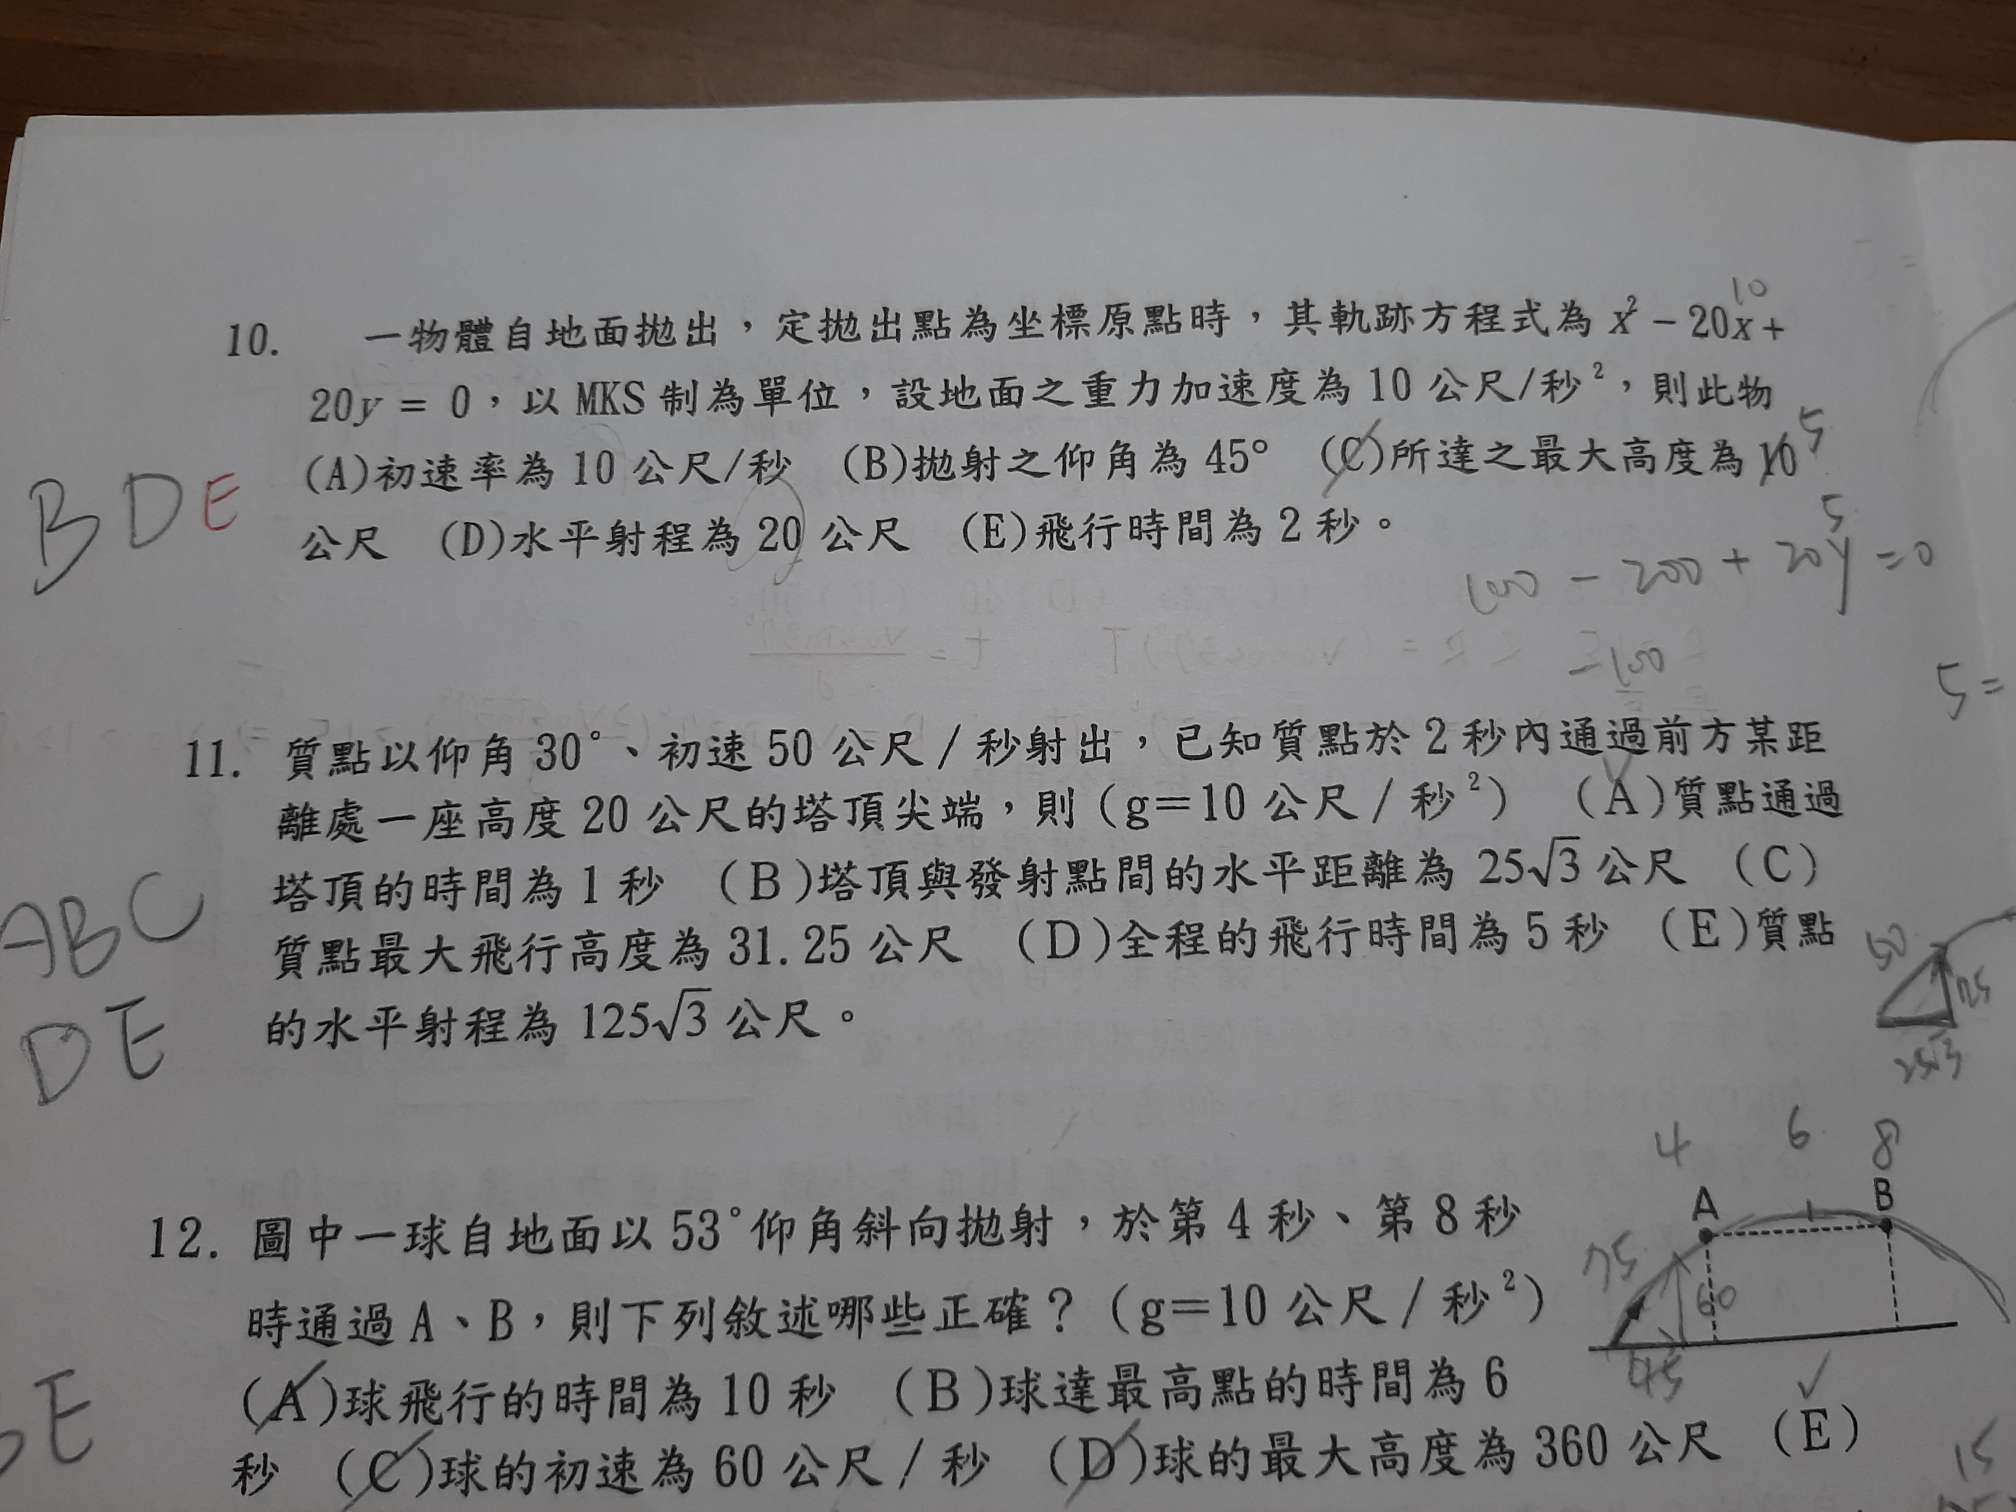 10
10. 一物體自地面拋出，定拋出點為坐標原點時，其軌跡方程式為 x² − 20x +
20y = 0，以 MKS 制為單位，設地面之重力加速度為 10 公尺/秒²，則此物
(A)初速率為 10 公尺/秒 (B)拋射之仰角為 45° (C)所達之最大高度為 10 5
BDE
公尺 (D)水平射程為 20 公尺 (E)飛行時間為 2 秒。
5
100 − 200 + 20y = 0
−100
5 =
11. 質點以仰角 30°、初速 50 公尺／秒射出，已知質點於 2 秒內通過前方某距
離處一座高度 20 公尺的塔頂尖端，則（g＝10 公尺／秒²） （A）質點通過
塔頂的時間為 1 秒 （B）塔頂與發射點間的水平距離為 25√3 公尺 （C）
ABC
質點最大飛行高度為 31.25 公尺 （D）全程的飛行時間為 5 秒 （E）質點
50
25
的水平射程為 125√3 公尺。
DE
25√3
4 6 8
A B
12. 圖中一球自地面以 53°仰角斜向拋射，於第 4 秒、第 8 秒
75
60
時通過 A、B，則下列敘述哪些正確？（g＝10 公尺／秒²）
45
(A)球飛行的時間為 10 秒 （B）球達最高點的時間為 6
BE
秒 （C）球的初速為 60 公尺／秒 （D）球的最大高度為 360 公尺 （E）
15